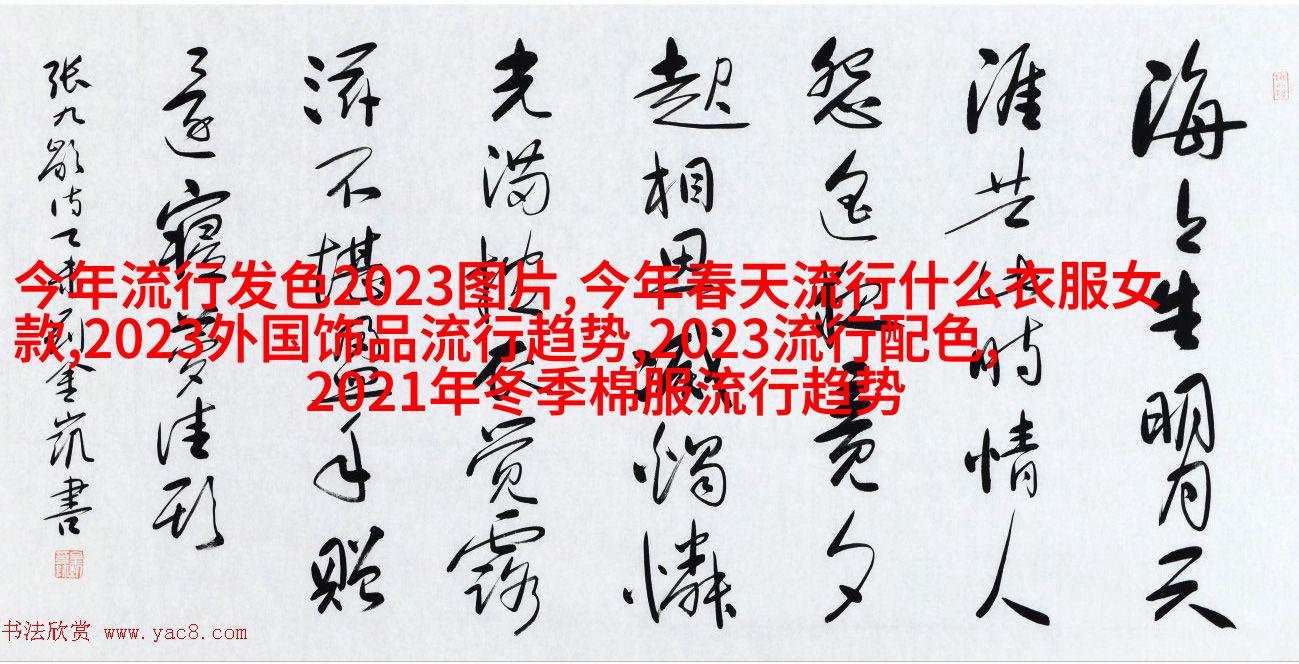 海上生明月天
涯共此时情人
怨遥夜竟夕
起相思滅燭憐
光满披衣觉露
滋不堪盈手贈
還寝夢佳期
张九龄诗乙未刘金凯書
今年流行发色2023图片,今年春天流行什么衣服女
款,2023外国饰品流行趋势,2023流行配色,
2021年冬季棉服流行趋势
书法欣赏 www.yac8.com